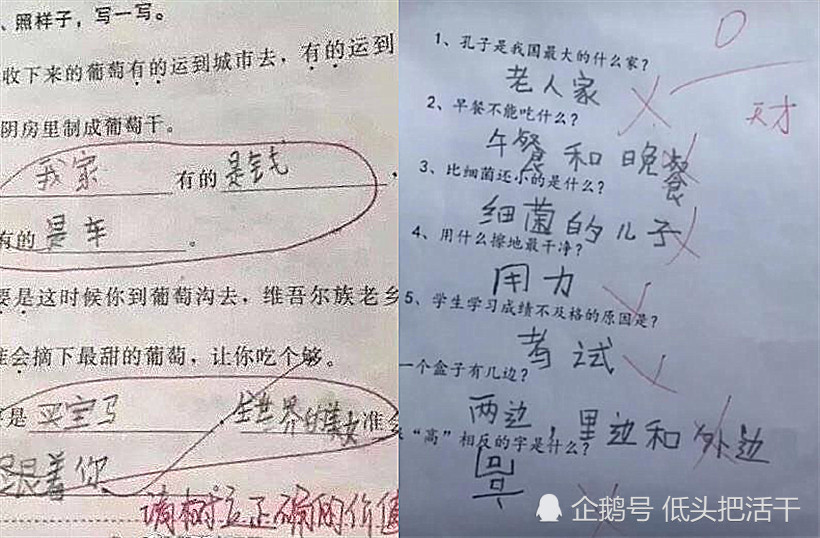 、照样子，写一写。
收下来的葡萄有的运到城市去，有的运到
阴房里制成葡萄干。
我家 有的 是钱 ，
有的 是车 。
要是这时候你到葡萄沟去，维吾尔族老乡
会摘下最甜的葡萄，让你吃个够。
是 买宝马 ，全世界的美女 准
跟着你
请树立正确的价值
0
天才
1、孔子是我国最大的什么家？
老人家
2、早餐不能吃什么？
午餐和晚餐
3、比细菌还小的是什么？
细菌的儿子
4、用什么擦地最干净？
用力
5、学生学习成绩不及格的原因是？
考试
一个盒子有几边？
两边，里边和外边
“高”相反的字是什么？
企鹅号 低头把活干